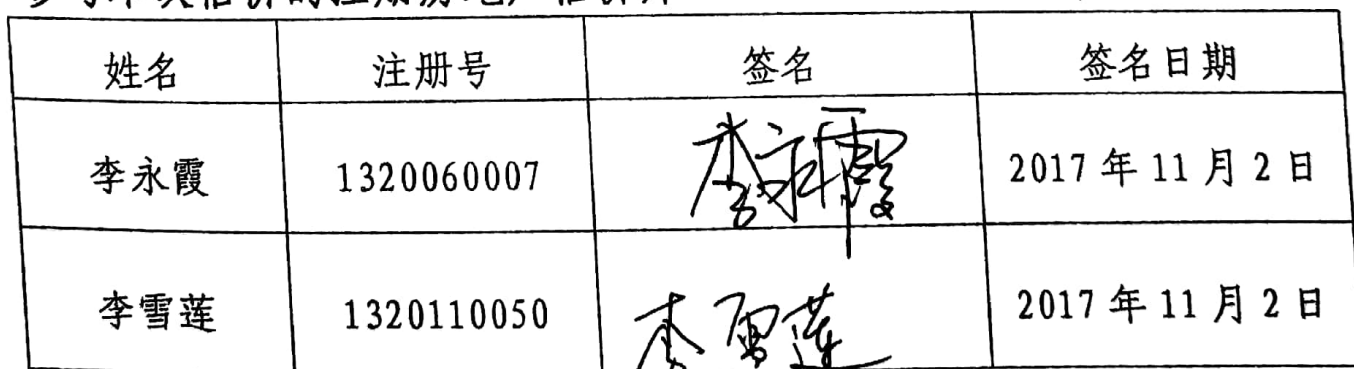 参与本次估价的注册房地产估价师
姓名 注册号 签名 签名日期
李永霞 1320060007 李永霞 2017年11月2日
李雪莲 1320110050 李雪莲 2017年11月2日